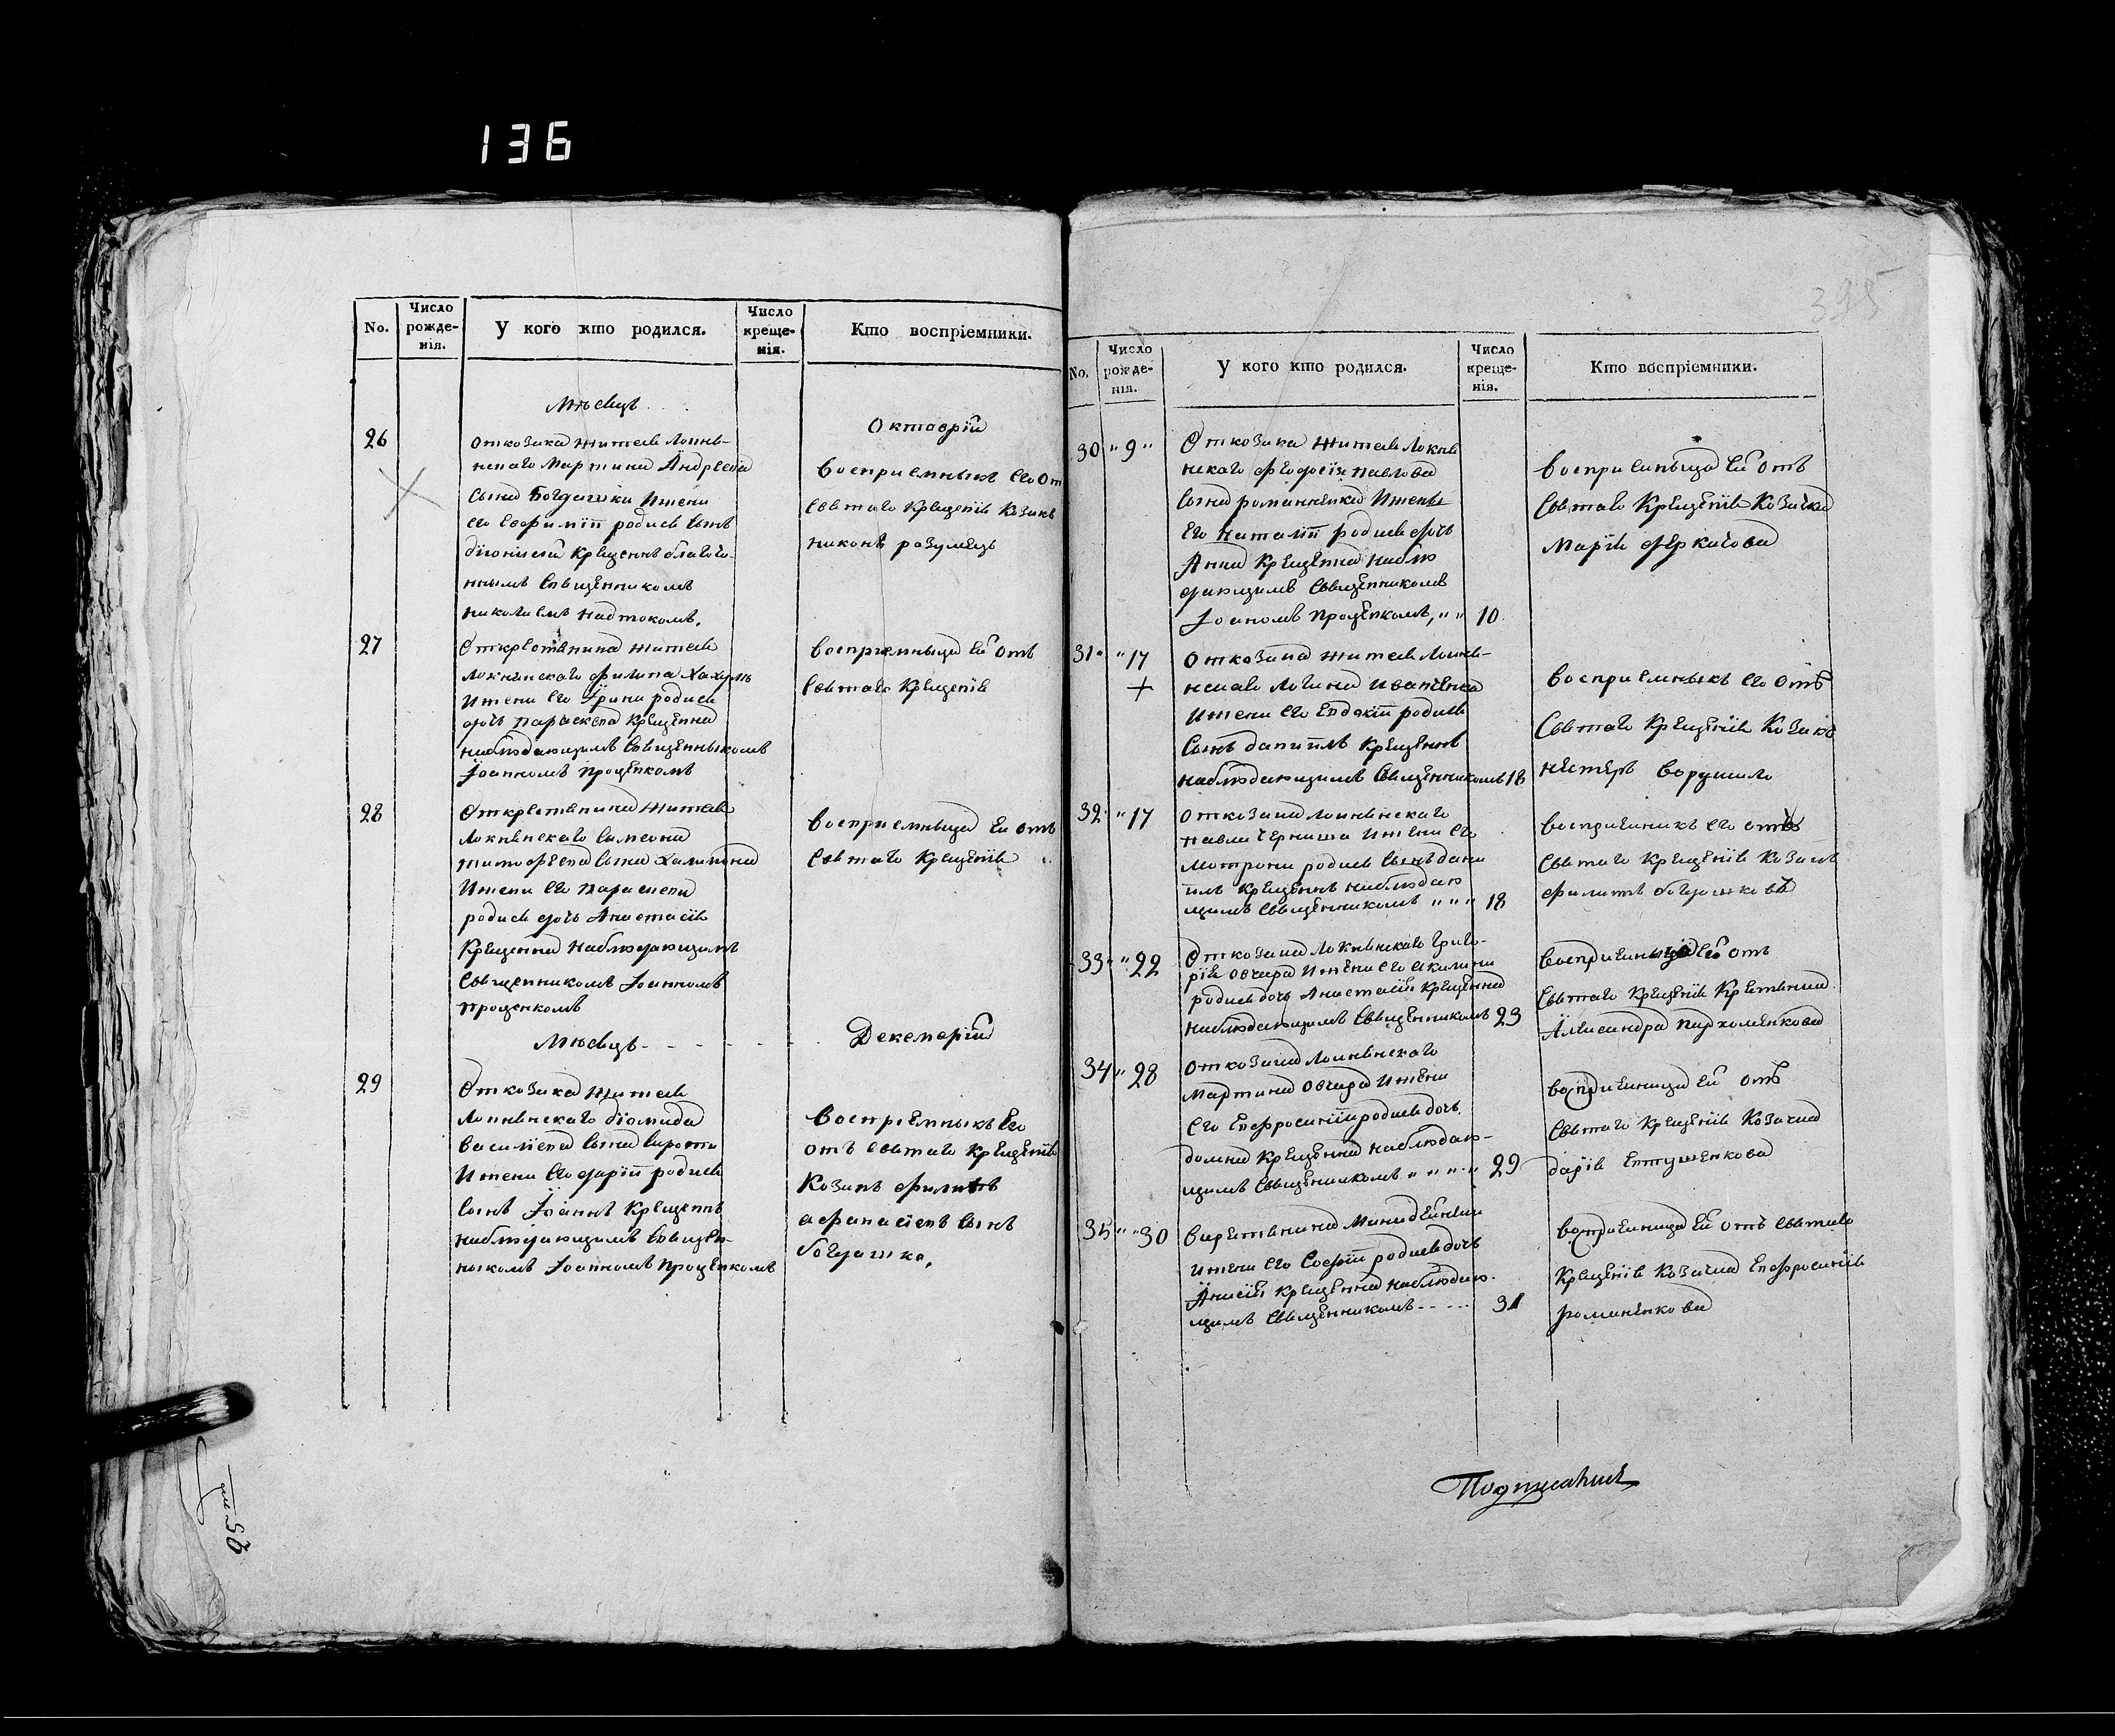 136
No.
Число рожде-нія.
У кого кто родился.
Число креще-нія.
Кто воспріемники.
Мѣсяцъ
Октоврій
26
от козака жителя Локнѣ-
нскаго Мартина Андреева
сына Богдашки жени
его Евфиміи родися сынъ
Діонисей крещенъ благочи-
ннымъ священникомъ
николаемъ надтокомъ.
Восприемныкъ его от
святаго крещенія козакъ
никонъ розумецъ
27
От крестянина жителя
локнянскаго филипа Хахуль
жени его Ірини родися
дочъ параскева крещенна
наблюдающимъ священныкомъ
Іоанномъ проценкомъ
восприемныца ей отъ
святаго крещенія
28
От крестянина жителя
Локнѣнскаго симеона
тимофеева сына
жени его параскеви
родися дочъ Анастасія
крещенна наблюдающимъ
священникомъ Іоанномъ
проценкомъ
восприемныца ей отъ
святаго крещенія
Мѣсяцъ - - - - -
Декемврій
29
От козака жителя
Локнѣнскаго діомида
василіева сына сироти
жени его дарій родися
сынъ Іоаннъ крещеннъ
наблюдающимъ священ-
ныкомъ Іоанномъ проценкомъ
Воспріемныкъ его
отъ святаго крещенія
козакъ филипъ
афанасіевъ сынъ
богдашка,
395
No.
Число рожде-нія.
У кого кто родился.
Число креще-нія.
Кто воспріемники.
30 " 9 "
От козака жителя Локнѣ
нскаго феодосія павлова
сына романенка жены
его наталіи родися дочъ
Анна крещенна наблю
дающимъ священникомъ
Іоаномъ проценкомъ, " " 10
восприемныца ей отъ
святаго крещенія козачка
Марія деркачова
31 " 17
от козака жителя Локнѣ-
нскаго логина иваненка
жени его евдокіи родися
сынъ даніилъ крещеннъ
наблюдающимъ священникомъ 18
восприемныкъ его отъ
святаго крещенія козакъ
нестеръ ворушило
32 " 17
от козака локнѣнскаго
павла черниша жени его
мотрони родися сынъ дани
илъ крещеннъ наблюдаю
щимъ священникомъ " " " 18
воспріемникъ его отъ
святаго крещенія козакъ
филипъ богдашковъ
33 " 22
От козака локнѣнскаго григо-
рія овчара жени его акилини
родися дочъ Анастасія крещенна
наблюдающимъ священникомъ 23
восприемныца ей отъ
святаго крещенія крестянка
Александра пархоменкова
34 " 28
от козака локнѣнскаго
мартина овчара жени
его евфросиніи родися дочъ
домна крещенна наблюдаю-
щимъ священникомъ " " " " 29
воспріемница ей отъ
святаго крещенія козачка
дарія евтушенкова
35 " 30
жени его софіи родися дочъ
Анисія крещенна наблюдаю-
щимъ священникомъ - - - - 31
воспріемница ей отъ святаго
крещенія козачка евфросинія
романенкова
Подписаніи